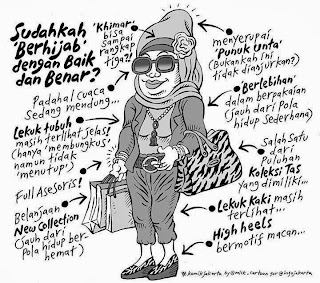 Sudahkah
'Berhijab'
dengan Baik
dan Benar?
'Khimar'
bisa
sampai
rangkap
tiga?!
menyerupai
'Punuk Unta'
(Bukankah ini
tidak dianjurkan?)
Padahal cuaca
Sedang mendung...
'Berlebihan'
dalam berpakaian
(Jauh dari Pola
hidup Sederhana)
Lekuk tubuh
masih terlihat jelas!
(hanya 'membungkus'
namun tidak
'menutup')
Salah Satu
dari
Puluhan
Koleksi Tas
yang dimiliki...
Full Asesoris!
Belanjaan
New Collection
(Jauh dari
Pola hidup ber-
hemat)
Lekuk Kaki masih
terlihat...
High heels
bermotif macan...
#komikjakarta by@mice_cartoon for@infojakarta